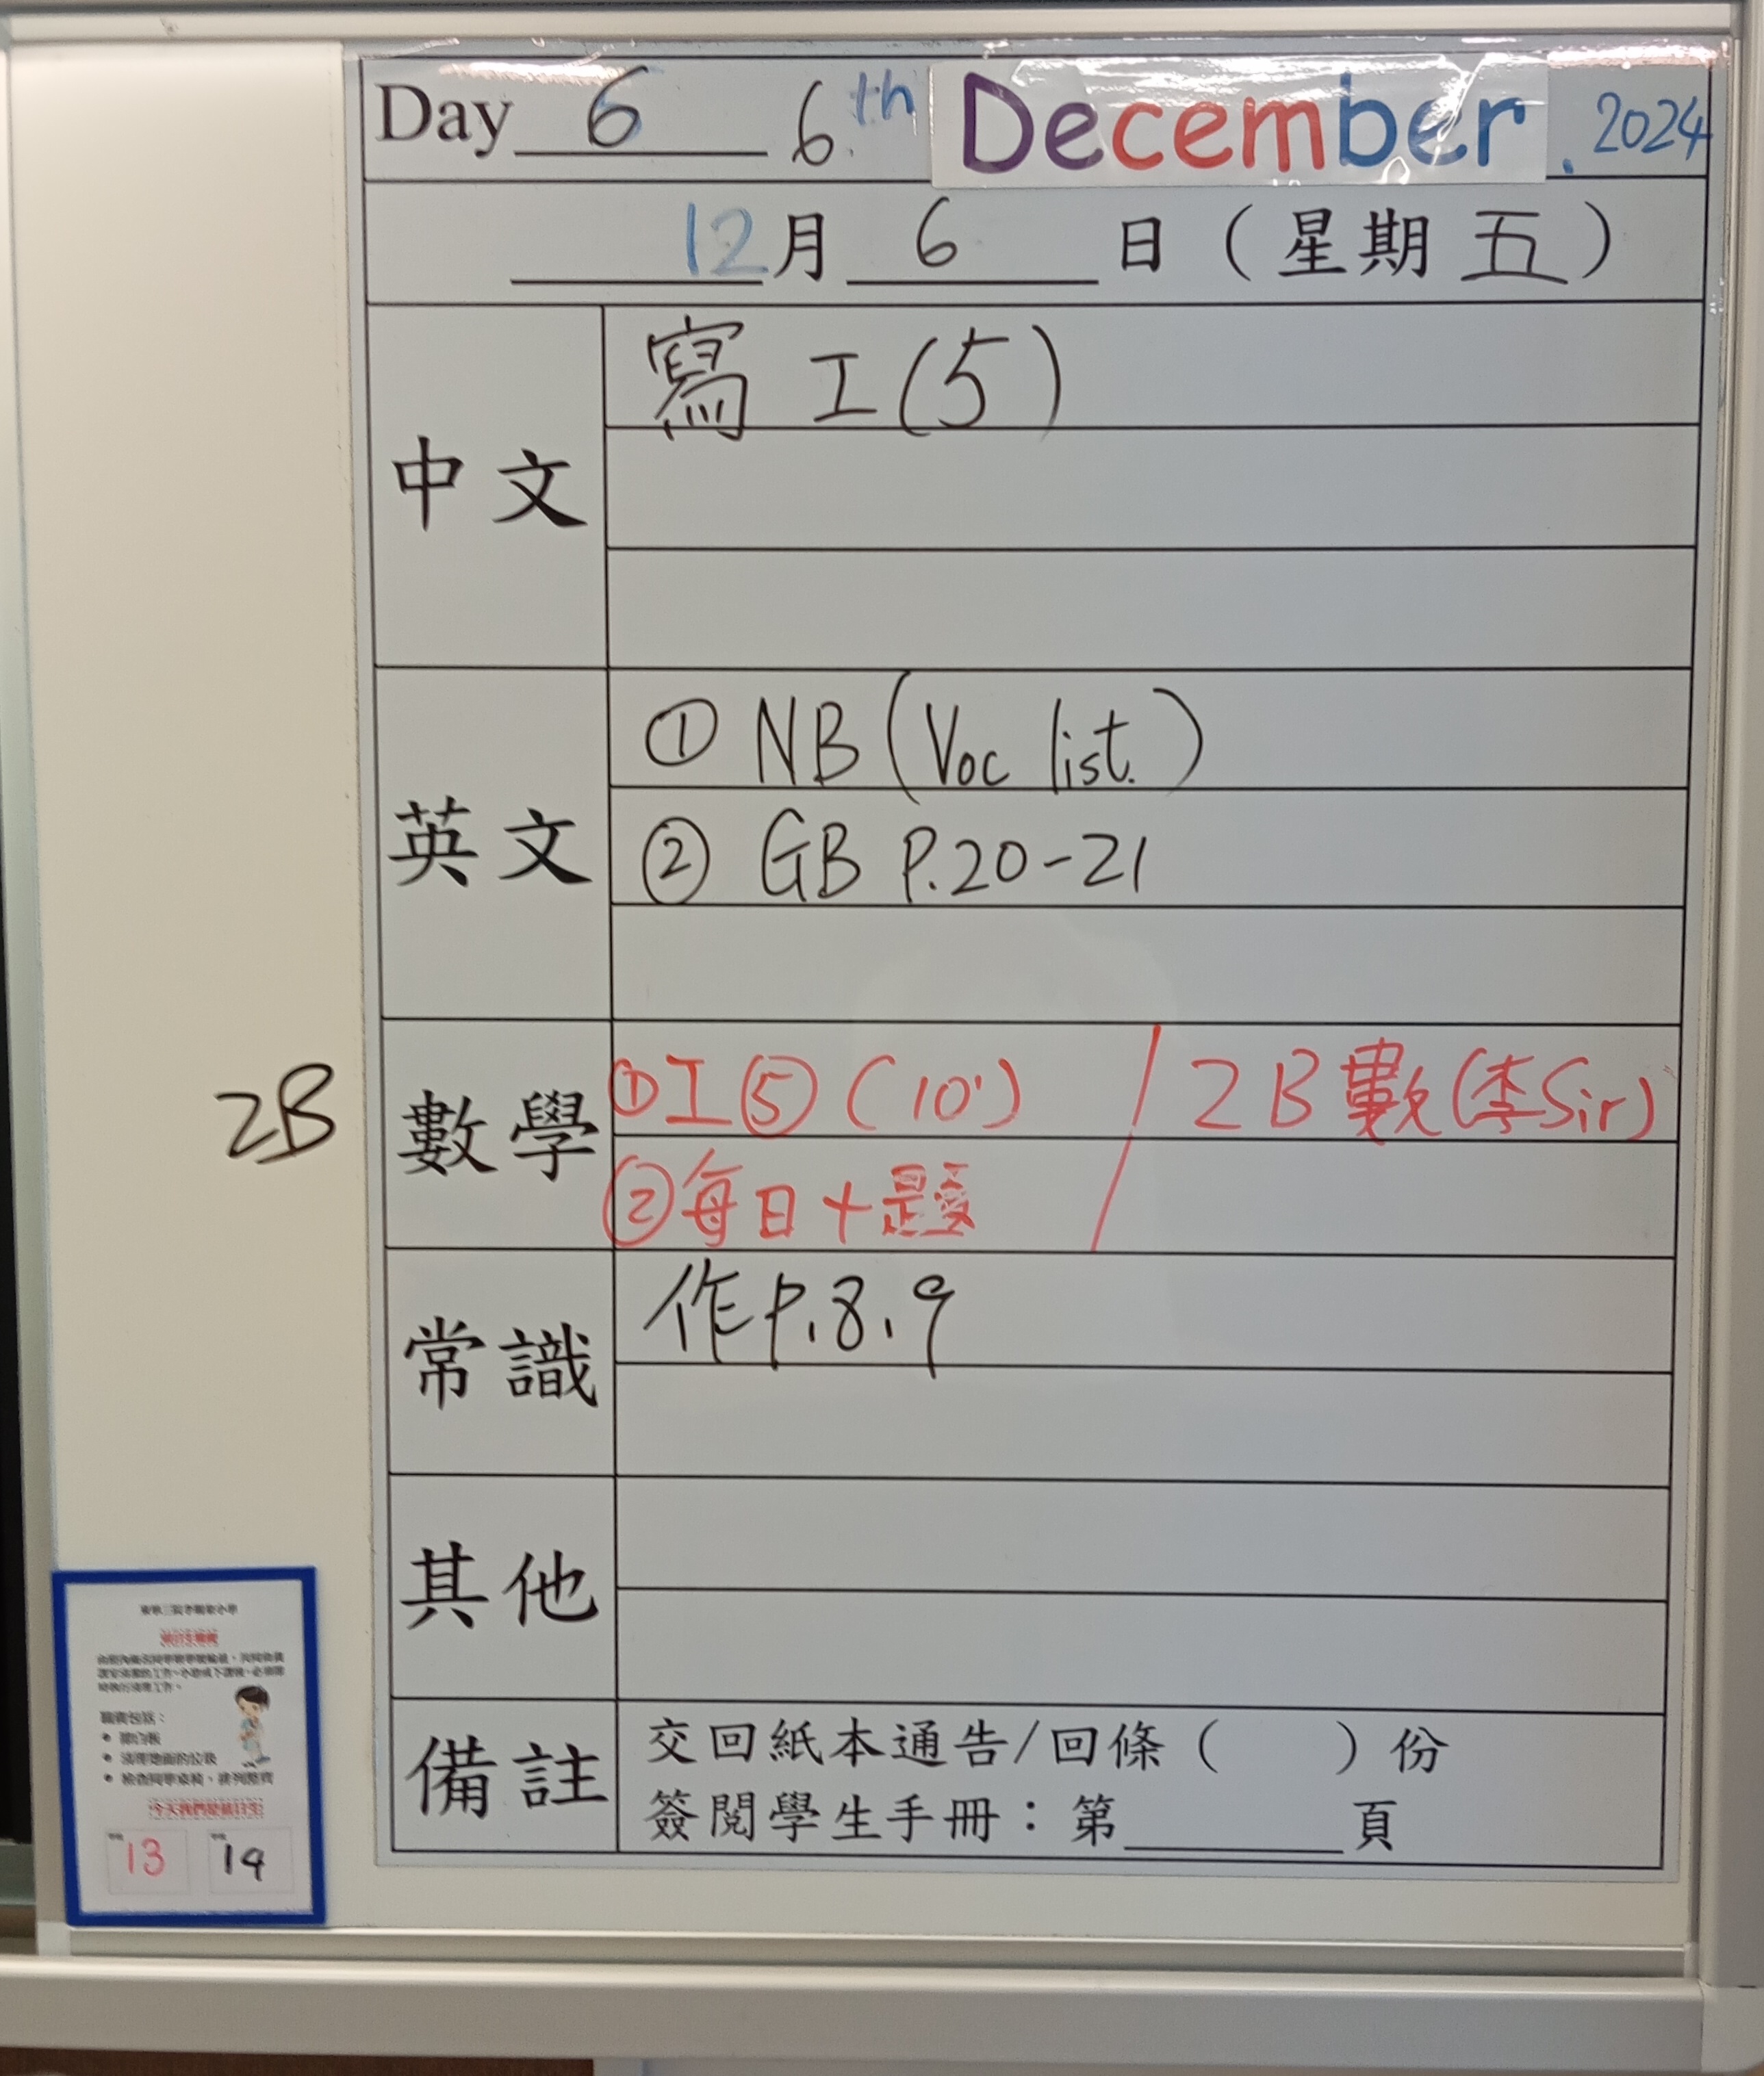 Day 6 6th December. 2024
12月6日（星期五）
中文
寫 工(5)
英文
① NB (Voc list.)
② GB P.20-21
2B
數學
①工⑤(10') / 2B數(李Sir)
②每日十題
常識
作P.8.9
其他
備註
交回紙本通告/回條（　　）份
簽閱學生手冊：第______頁
職責包括：
今天我們是值日生
13 14